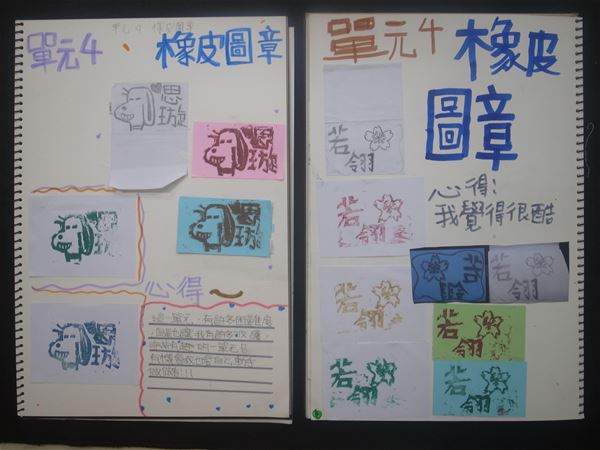 單元4 橡皮圖章
單元4 橡皮圖章
思
璇
思
璇
思
璇
思
璇
思
璇
心得
這一單元，有許多困難度
但是也讓我有許多收獲，
單元4 橡皮
圖章
若
翎
若
翎
心得:
我覺得很酷
若
翎
若
翎
若
翎
若
翎
若
翎